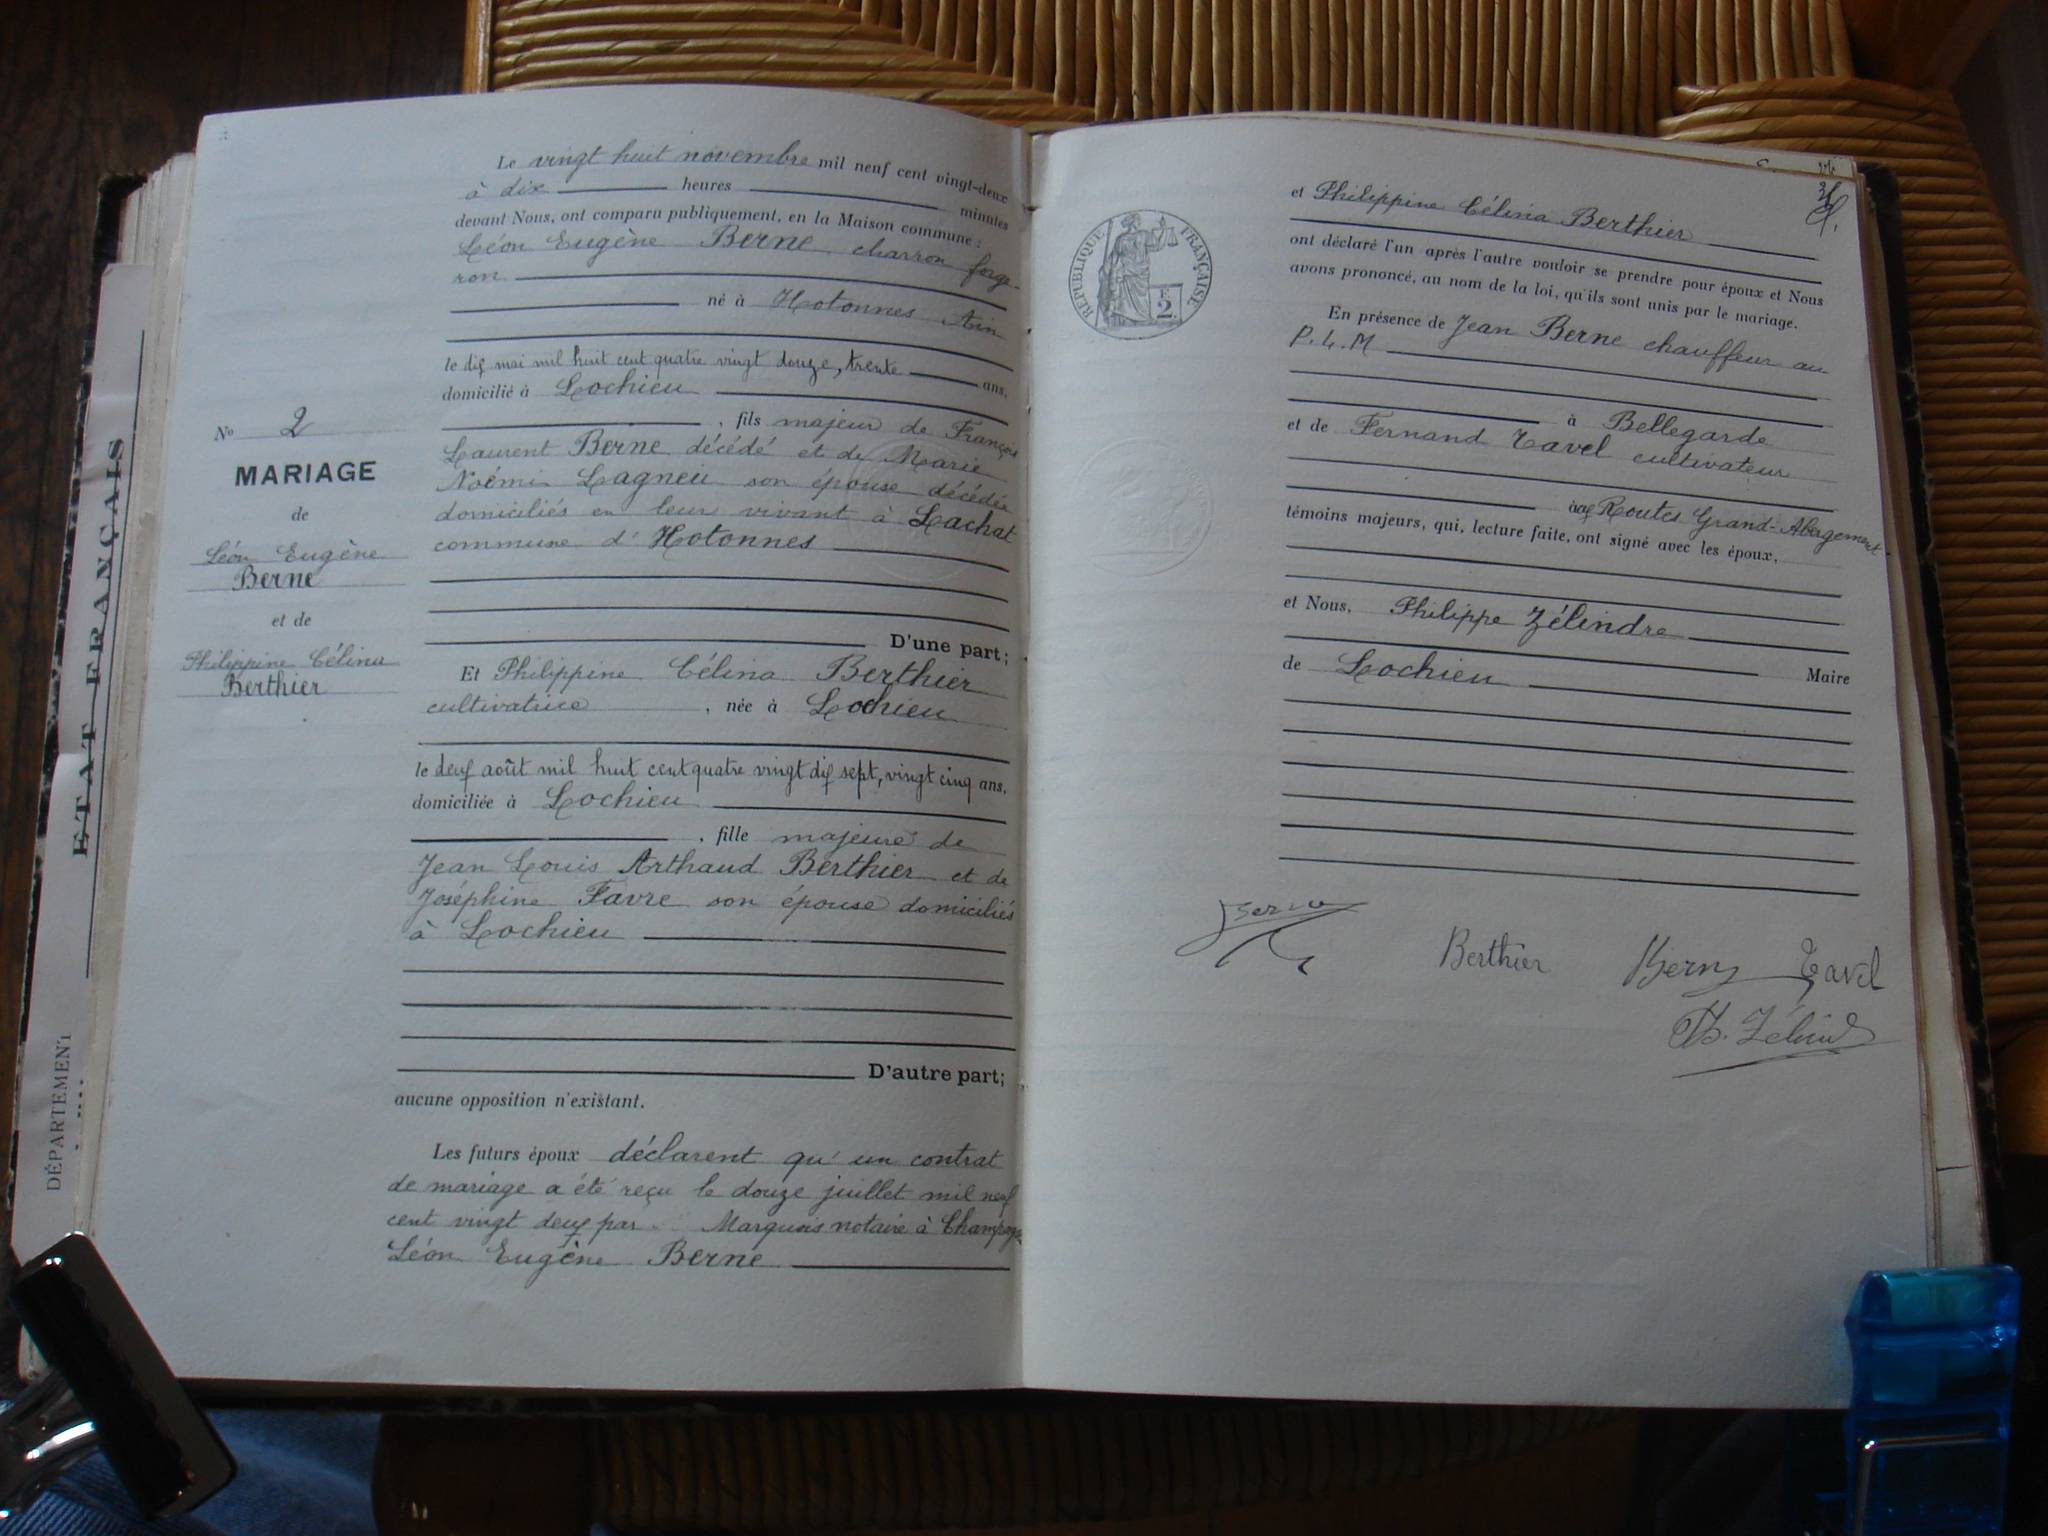 Le vingt huit novembre mil neuf cent vingt-deux
à dix heures minutes
devant Nous, ont comparu publiquement, en la Maison commune :
Léon Eugène Berne charron forge-
ron
né à Hotonnes Ain
le dix mai mil huit cent quatre vingt douze, trente ans,
domicilié à Lochieu
, fils majeur de François
Laurent Berne décédé et de Marie
Noémi Lagneu son épouse décédée
domiciliés en leur vivant à Lachat
commune d'Hotonnes
D'une part;
Et Philippine Célina Berthier
cultivatrice , née à Lochieu
le deux août mil huit cent quatre vingt dix sept, vingt cinq ans,
domiciliée à Lochieu
, fille majeure de
Jean Louis Arthaud Berthier et de
Joséphine Favre son épouse domiciliés
à Lochieu
D'autre part;
aucune opposition n'existant.
Les futurs époux déclarent qu'un contrat
de mariage a été reçu le douze juillet mil neuf
cent vingt deux par Marquois notaire à Champagne
Léon Eugène Berne
No 2
MARIAGE
de
Léon Eugène
Berne
et de
Philippine Célina
Berthier
ETAT FRANÇAIS
DÉPARTEMENT
et Philippine Célina Berthier
ont déclaré l'un après l'autre vouloir se prendre pour époux et Nous
avons prononcé, au nom de la loi, qu'ils sont unis par le mariage.
En présence de Jean Berne chauffeur au
P.L.M
à Bellegarde
et de Fernand Tavel cultivateur
aux Routes Grand-Abergement
témoins majeurs, qui, lecture faite, ont signé avec les époux,
et Nous, Philippe Zélindre
Maire
de Lochieu
RÉPUBLIQUE FRANÇAISE
F.
2.
Berne
Berthier
Berne
Tavel
Ph. Zélind